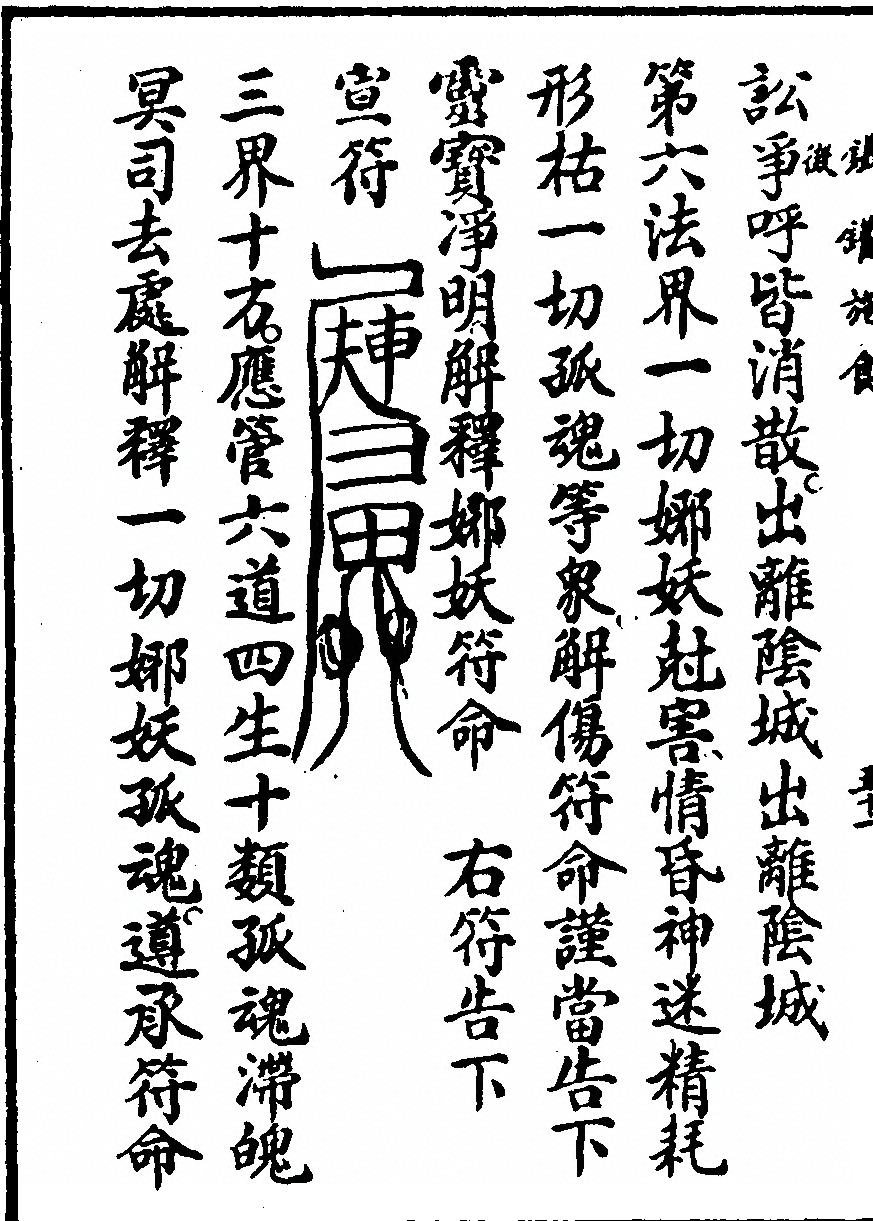 訟爭呼皆消散出離陰城出離陰城
第六法界一切娜妖尅害情昏神迷精耗
形枯一切孤魂等衆解傷符命謹當告下
靈寶淨明解釋娜妖符命 右符告下
宣符
三界十方應管六道四生十類孤魂滯魄
冥司去處解釋一切娜妖孤魂遵承符命